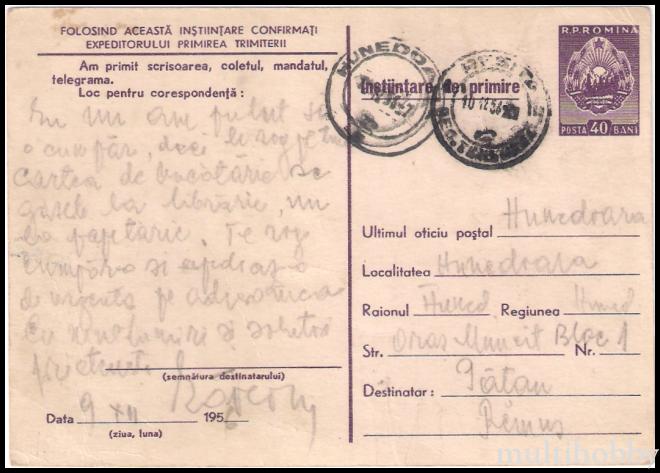 FOLOSIND ACEASTĂ INȘTIINȚARE CONFIRMAȚI
EXPEDITORULUI PRIMIREA TRIMITERII
Am primit scrisoarea, coletul, mandatul,
telegrama.
Loc pentru corespondență:
Eu nu am putut să
o cumpăr, deci te rog
cartea de bucătărie se
la librărie, nu
la papetărie. Te rog
cumpăra si
de urgenta pe adresa mea
Cu multumiri si salutări
prietenesti
(semnătura destinatarului)
Data 9 XII 1956
(ziua, luna)
HUNEDOARA
Înștiințare de primire
10.12.56
R.P.ROMINA
POSTA 40 BANI
Ultimul oficiu poștal Hunedoara
Localitatea Hunedoara
Raionul Huned. Regiunea Huned.
Str. Oras Muncit Bloc 1 Nr.
Destinatar: Tătan
Remus
multihobby